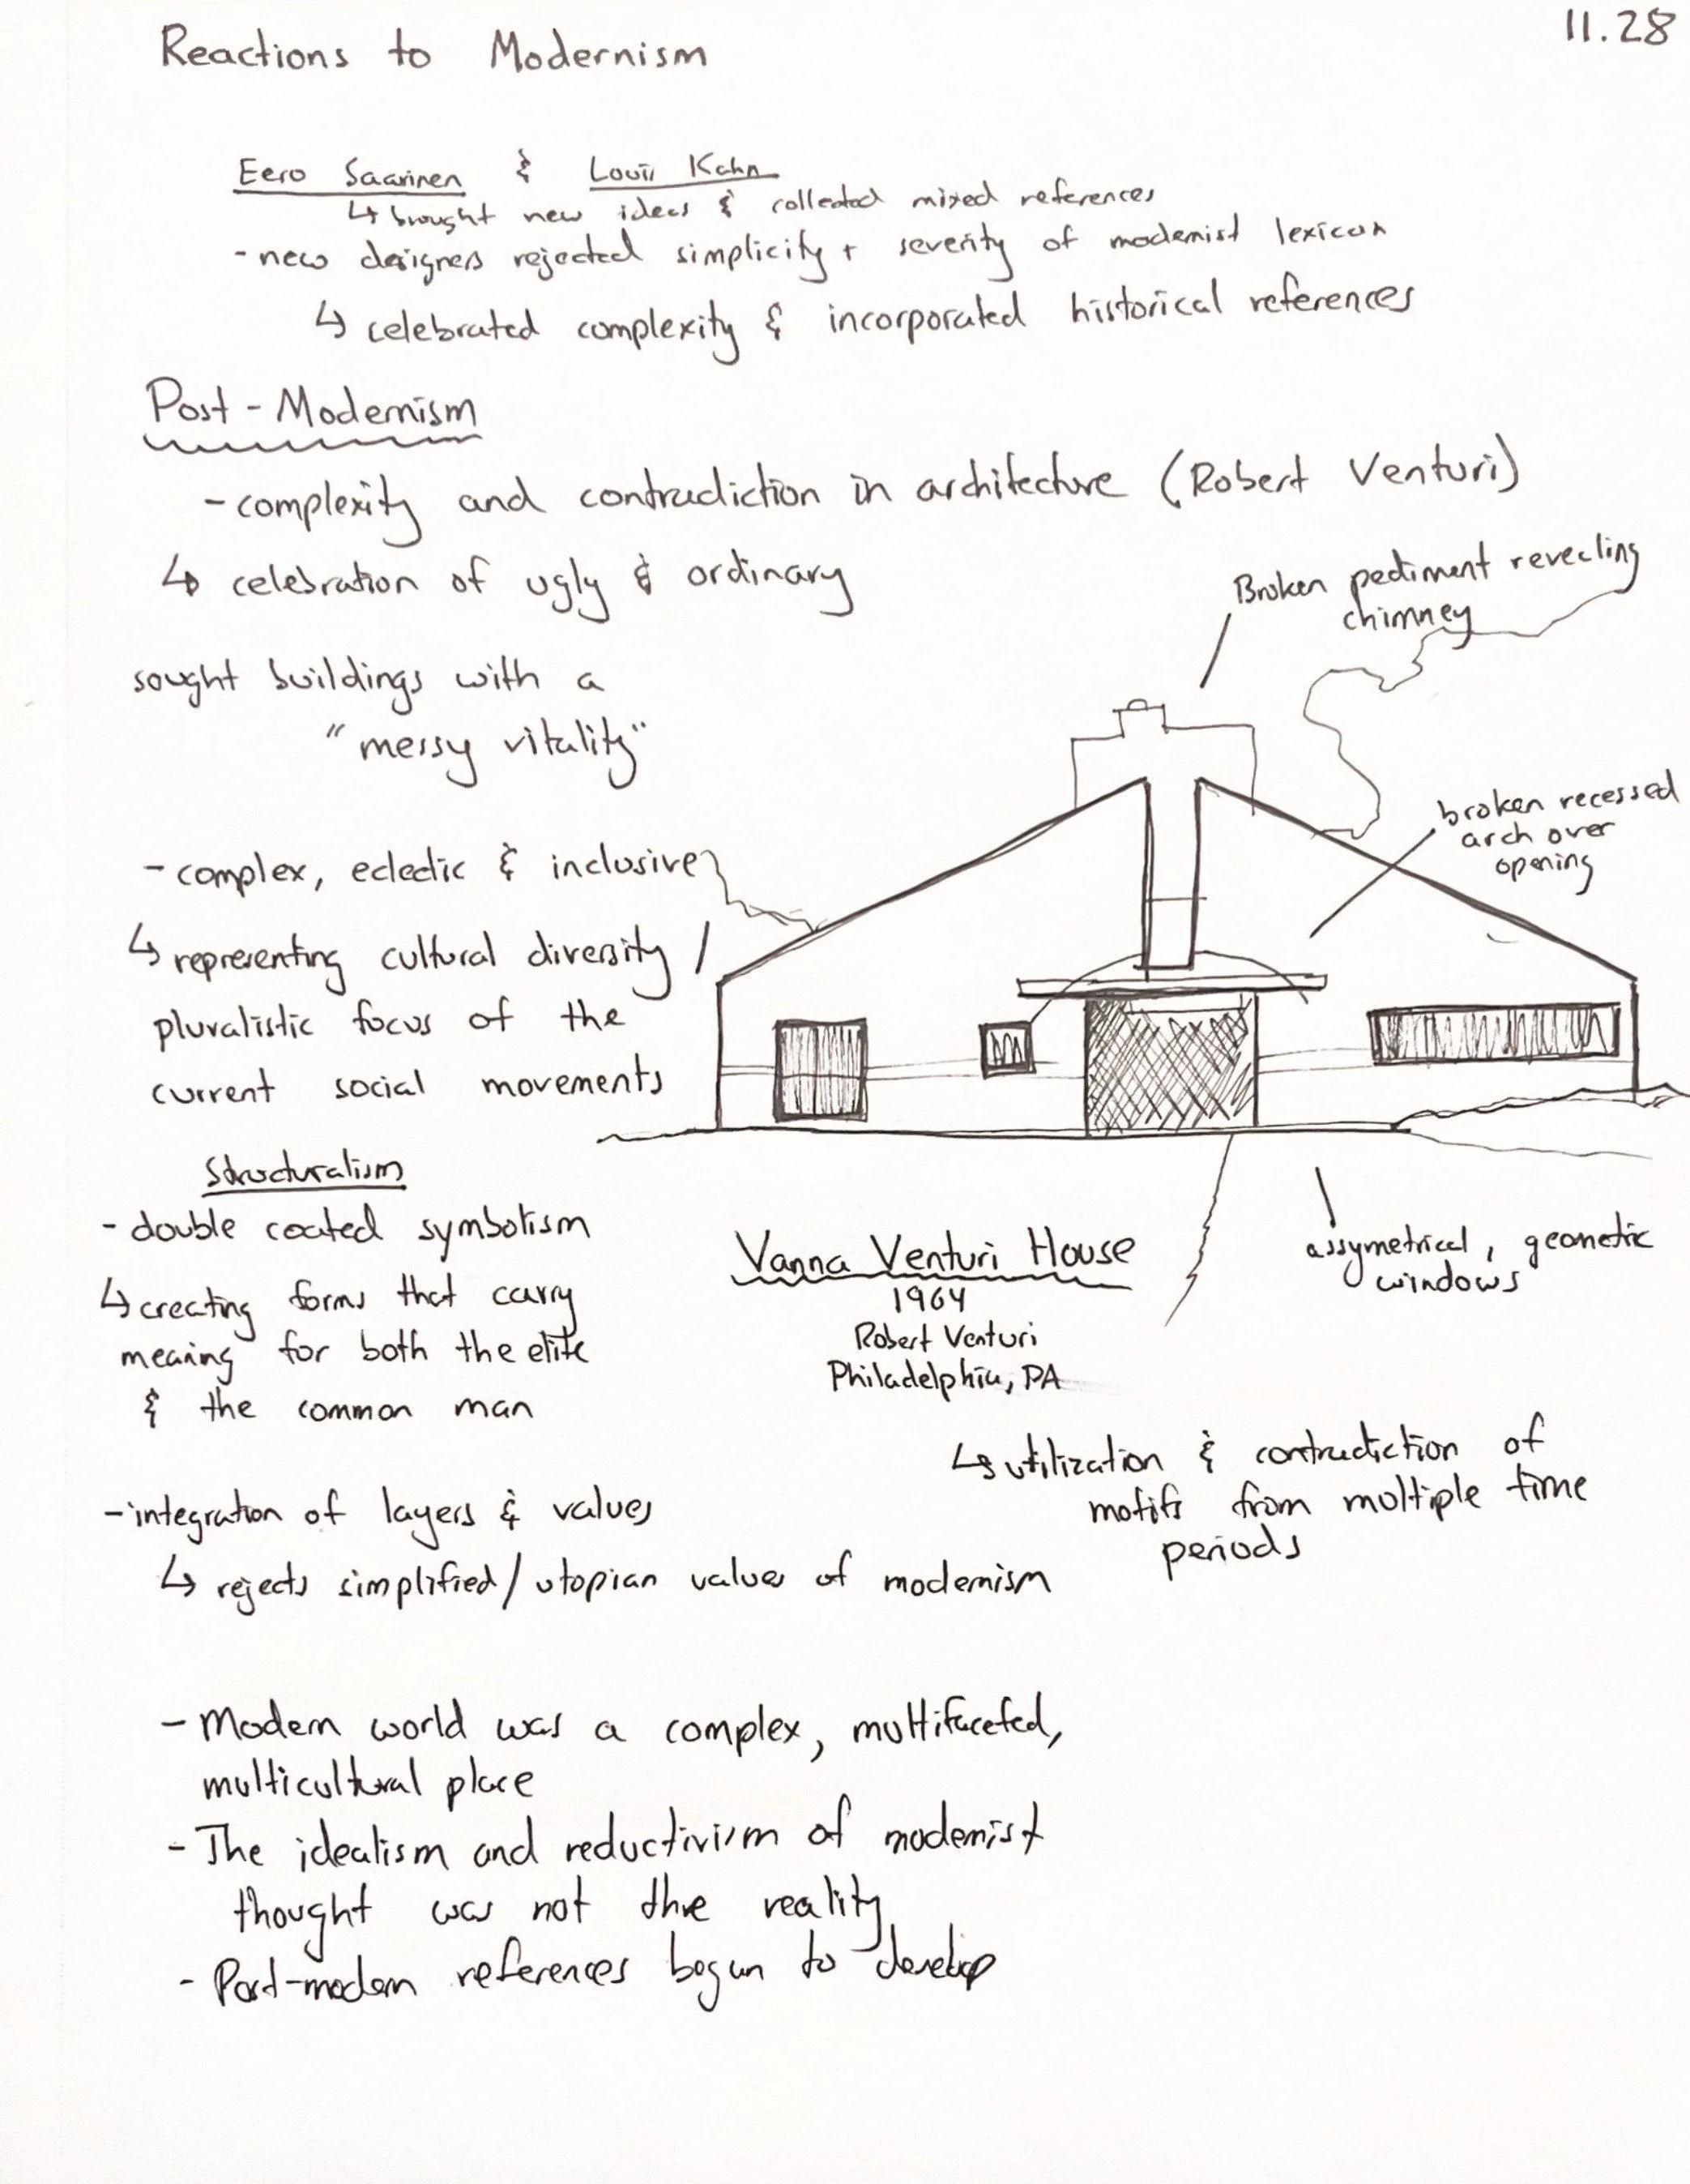 Reactions to Modernism
11.28
Eero Saarinen & Louis Kahn
↳ brought new ideas & collected mixed references
- new designers rejected simplicity + severity of modernist lexicon
↳ celebrated complexity & incorporated historical references
Post-Modernism
- complexity and contradiction in architecture (Robert Venturi)
↳ celebration of ugly & ordinary
sought buildings with a
"messy vitality"
- complex, eclectic & inclusive
↳ representing cultural diversity /
pluralistic focus of the
current social movements
Broken pediment revealing
chimney
broken recessed
arch over
opening
assymetrical, geometric
windows
Vanna Venturi House
1964
Robert Venturi
Philadelphia, PA
↳ utilization & contradiction of
motifs from multiple time
periods
Structuralism
- double coated symbolism
↳ creating forms that carry
meaning for both the elite
& the common man
- integration of layers & values
↳ rejects simplified/utopian values of modernism
- Modern world was a complex, multifaceted,
multicultural place
- The idealism and reductivism of modernist
thought was not the reality
- Post-modern references began to develop